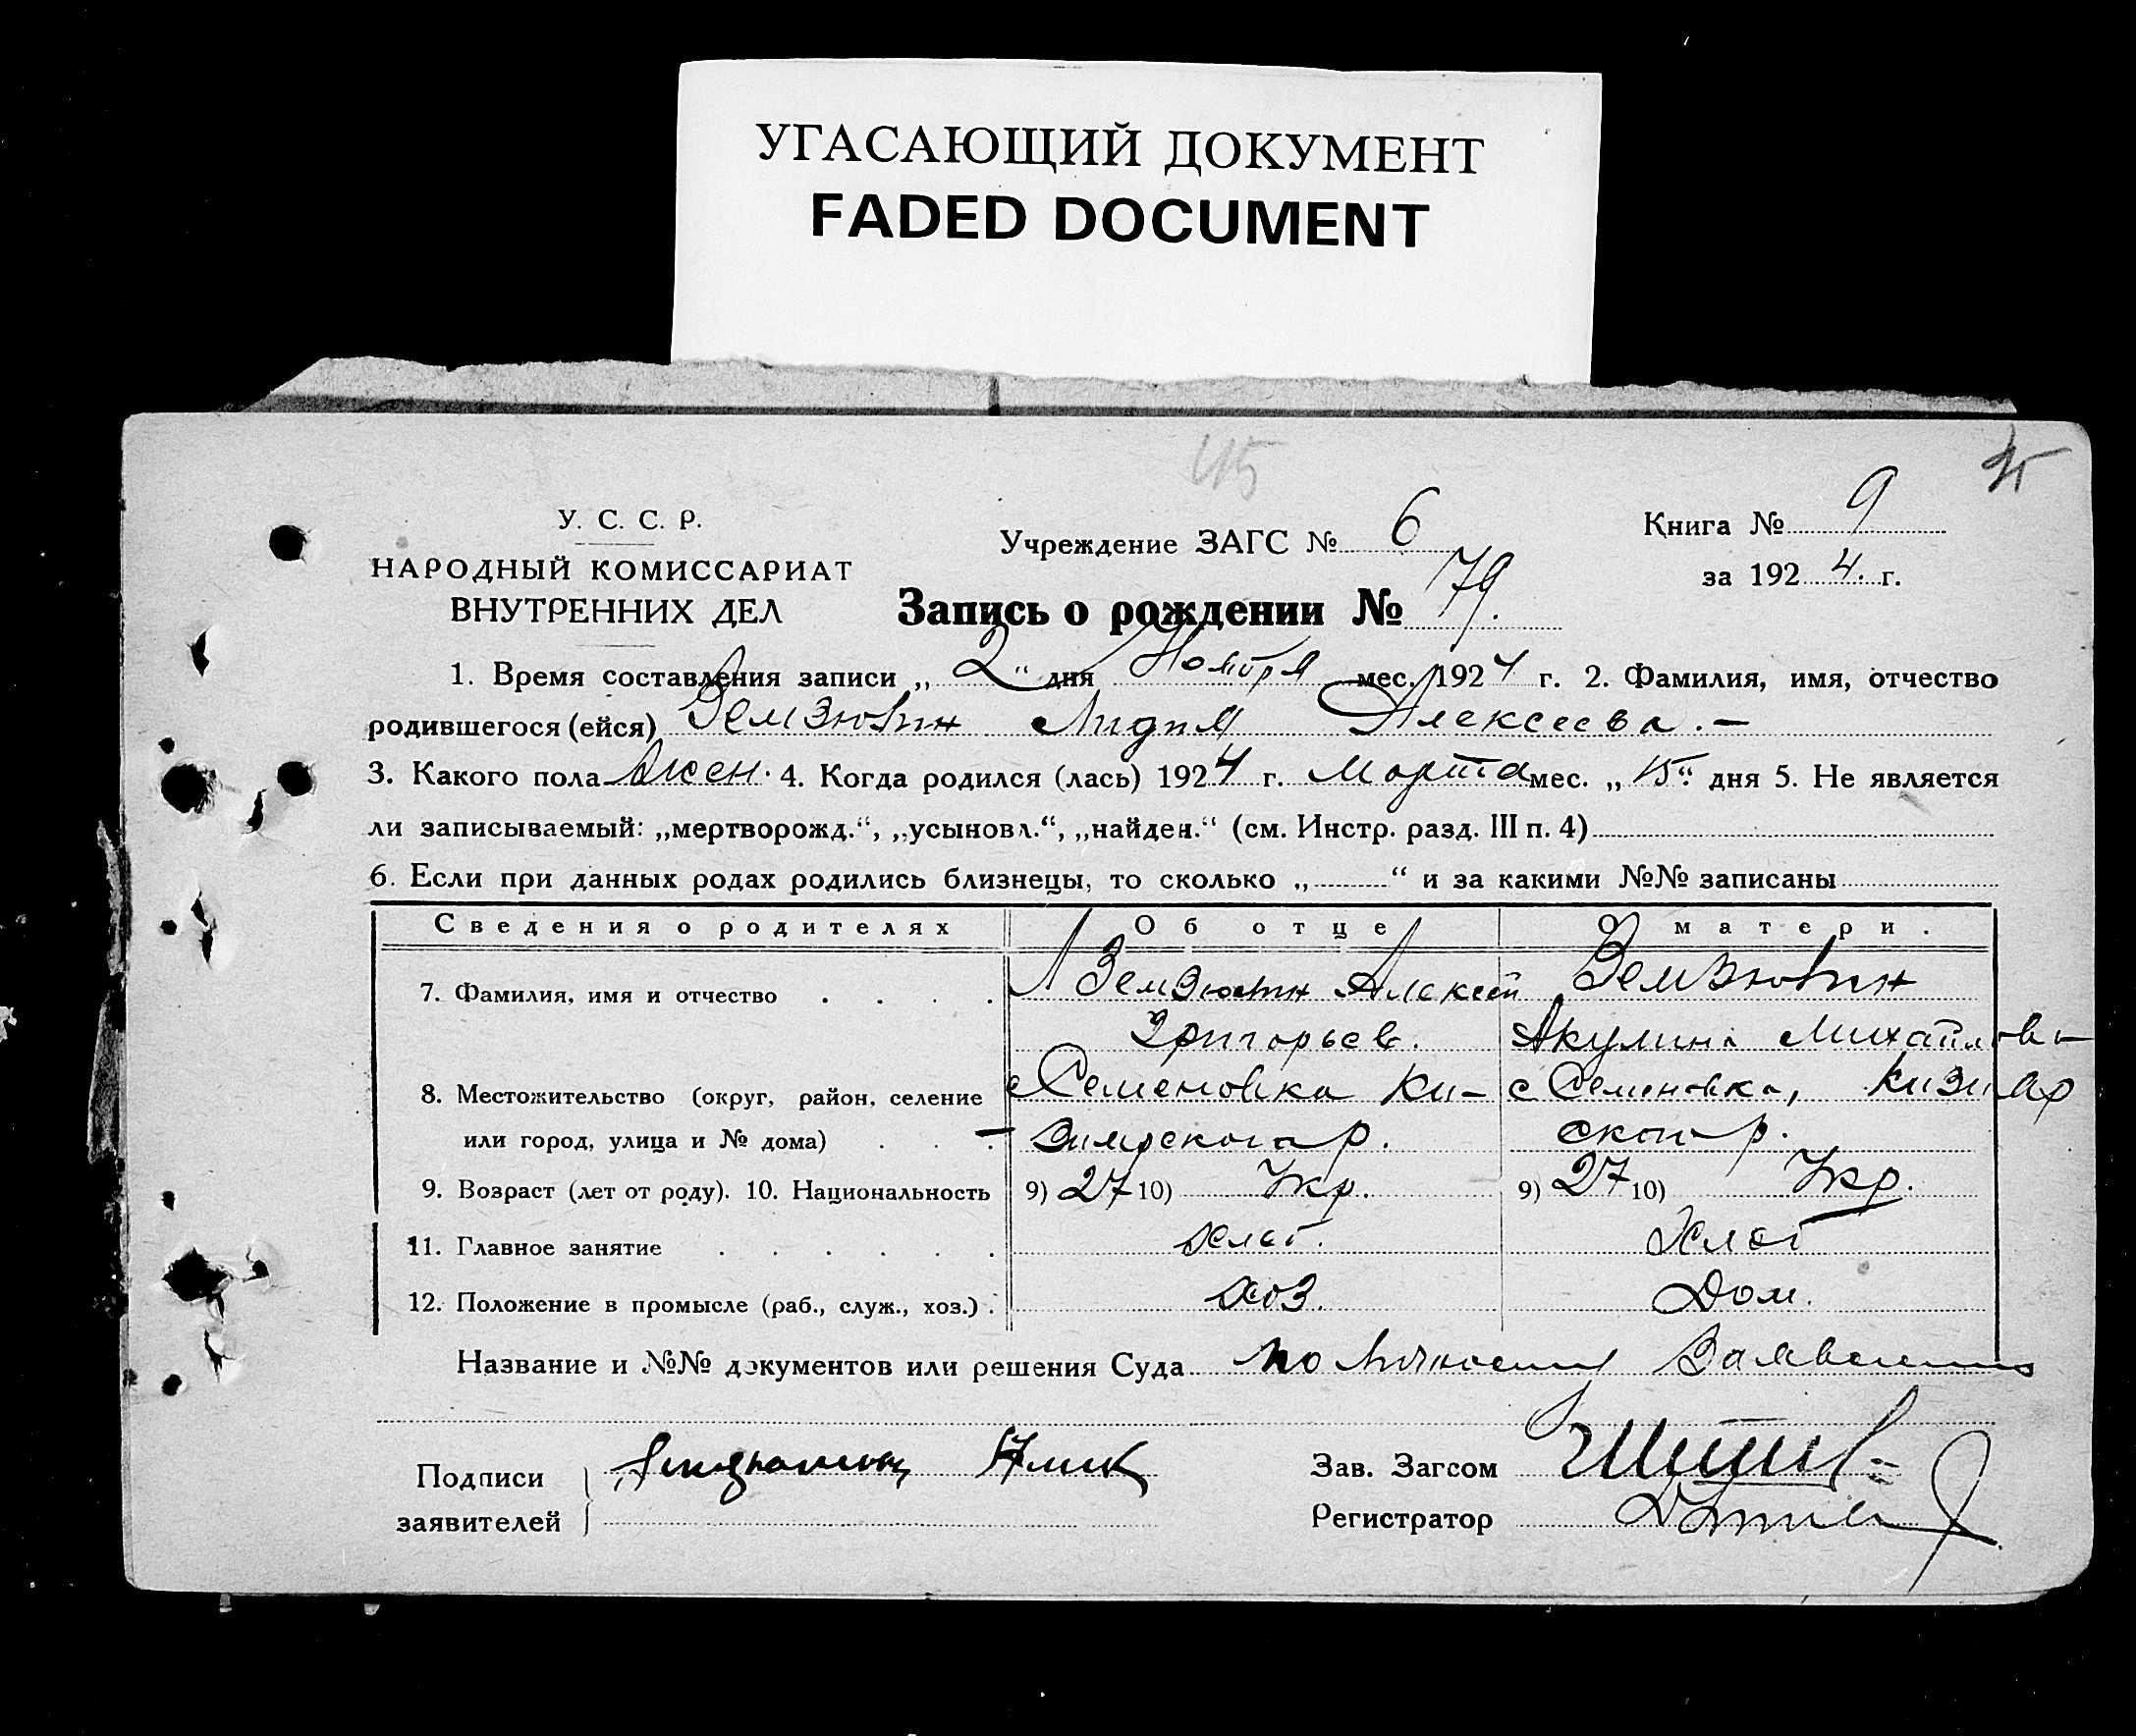 УГАСАЮЩИЙ ДОКУМЕНТ
FADED DOCUMENT
45
У. С. С. Р.
НАРОДНЫЙ КОМИССАРИАТ
ВНУТРЕННИХ ДЕЛ
Учреждение ЗАГС № 6
Книга № 9
за 1924. г.
Запись о рождении № 79.
1. Время составления записи „2“ дня Ноября мес. 1924 г. 2. Фамилия, имя, отчество
родившегося (ейся) Лидия Алексеева.—
3. Какого пола жен. 4. Когда родился (лась) 1924 г. Марта мес. „15“ дня 5. Не является
ли записываемый: „мертворожд.“, „усыновл.“, „найден.“ (см. Инстр. разд. III п. 4)
6. Если при данных родах родились близнецы, то сколько „ “ и за какими №№ записаны
Сведения о родителях Об отце О матери.
7. Фамилия, имя и отчество Алексей
Григорьев. Акулина Михайлов
8. Местожительство (округ, район, селение с Семеновка Ки- с Семеновка, Кизияр
или город, улица и № дома) р. ского р.
9. Возраст (лет от роду). 10. Национальность 9) 27 10) Укр. 9) 27 10) Укр.
11. Главное занятие хлеб. хлеб
12. Положение в промысле (раб., служ., хоз.) хоз. Дом.
Название и №№ документов или решения Суда по личному
Подписи
заявителей
Зав. Загсом
Регистратор